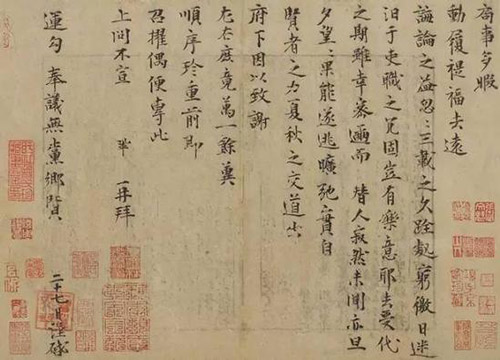 局事多暇
動履禔福去遠
誨論之益忽忽三載之久跧處窮徼日迷
汨于吏職之冗固豈有樂意耶去受代
之期雖幸密邇而替人寂然未聞亦旦
夕望望果能遂逃曠弛實自
賢者之力夏秋之交道出
府下因以致謝
左右庶竟萬一餘冀
順序珍重前即
召擢偶便專此
上問不宣 鞏 再拜
運勾奉議無黨鄉賢 二十七日謹啓